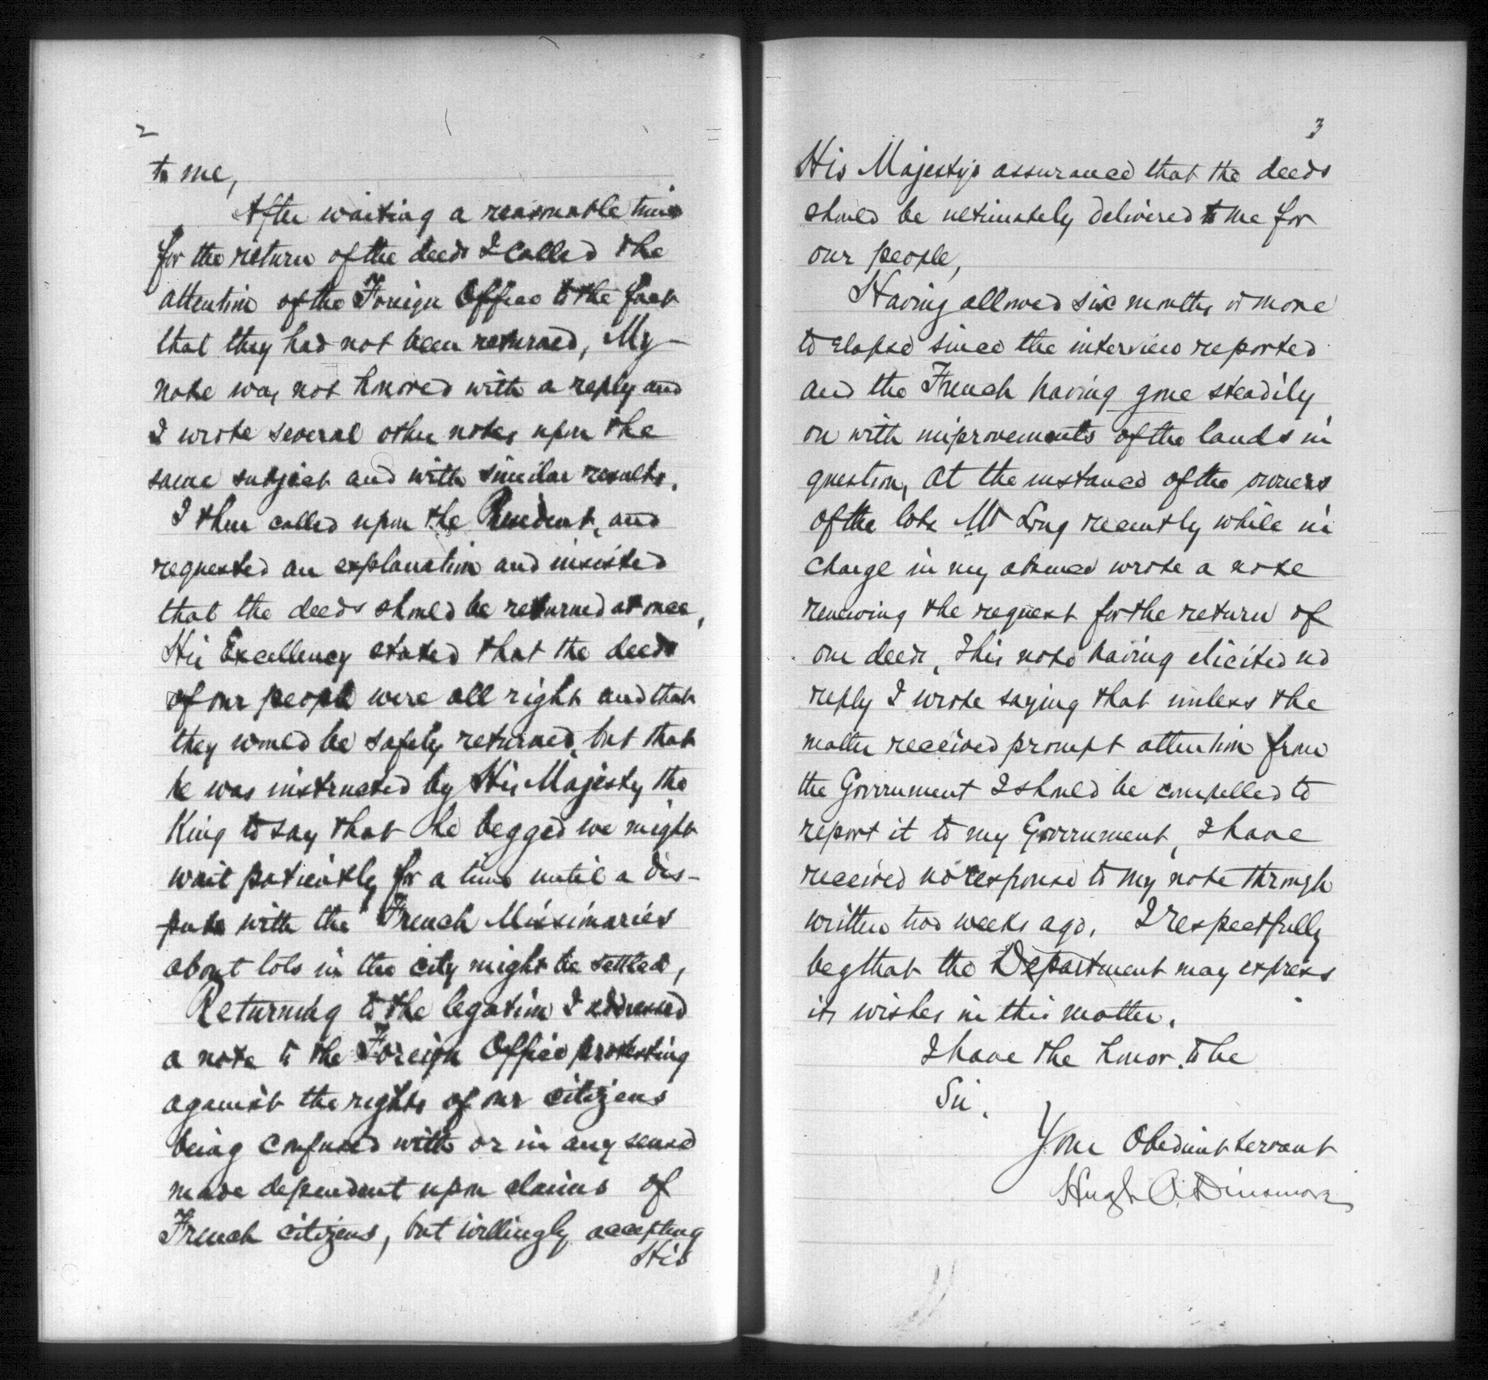 2
to me,
After waiting a reasonable time
for the return of the deeds I called the
attention of the Foreign Office to the fact
that they had not been returned, My
note was not honored with a reply and
I wrote several other notes upon the
same subject and with similar results.
I then called upon the President, and
requested an explanation and insisted
that the deeds should be returned at once,
His Excellency stated that the deeds
of our people were all right and that
they would be safely returned, but that
he was instructed by His Majesty the
King to say that he begged we might
wait patiently for a time until a dis-
pute with the French Missionaries
about lots in the city might be settled,
Returning to the legation I addressed
a note to the Foreign Office protesting
against the rights of our citizens
being confused with or in any sense
made dependent upon claims of
French citizens, but willingly accepting
His
3
His Majesty's assurance that the deeds
should be ultimately delivered to me for
our people,
Having allowed six months or more
to elapse since the interview reported
and the French having gone steadily
on with improvements of the lands in
question, at the instance of the owners
of the lots Mr Long recently while in
charge in my absence wrote a note
renewing the request for the return of
our deeds, This note having elicited no
reply I wrote saying that unless the
matter received prompt attention from
the Government I should be compelled to
report it to my Government, I have
received no response to my note though
written two weeks ago. I respectfully
beg that the Department may express
its wishes in this matter.
I have the honor to be
Sir,
Your Obedient servant
Hugh A. Dinsmore